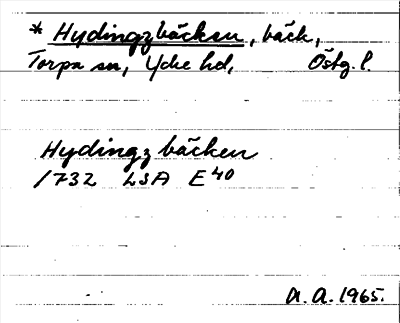 * Hydingzbäcken, bäck,
Torpa sn, Ydre hd, Östg. l.
Hydingz bäcken
1732 LSA E40
A. A. 1965.